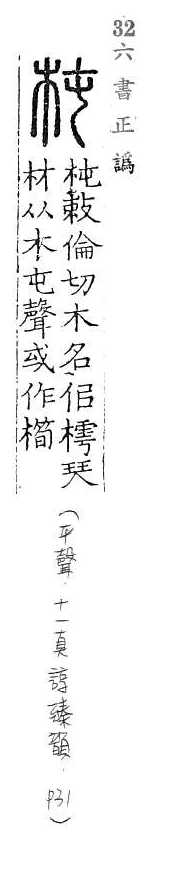 32 六書正譌
杶
杶敕倫切木名佀樗琴
材从木屯聲或作橁
(平聲．十一真諄臻韻．P31)